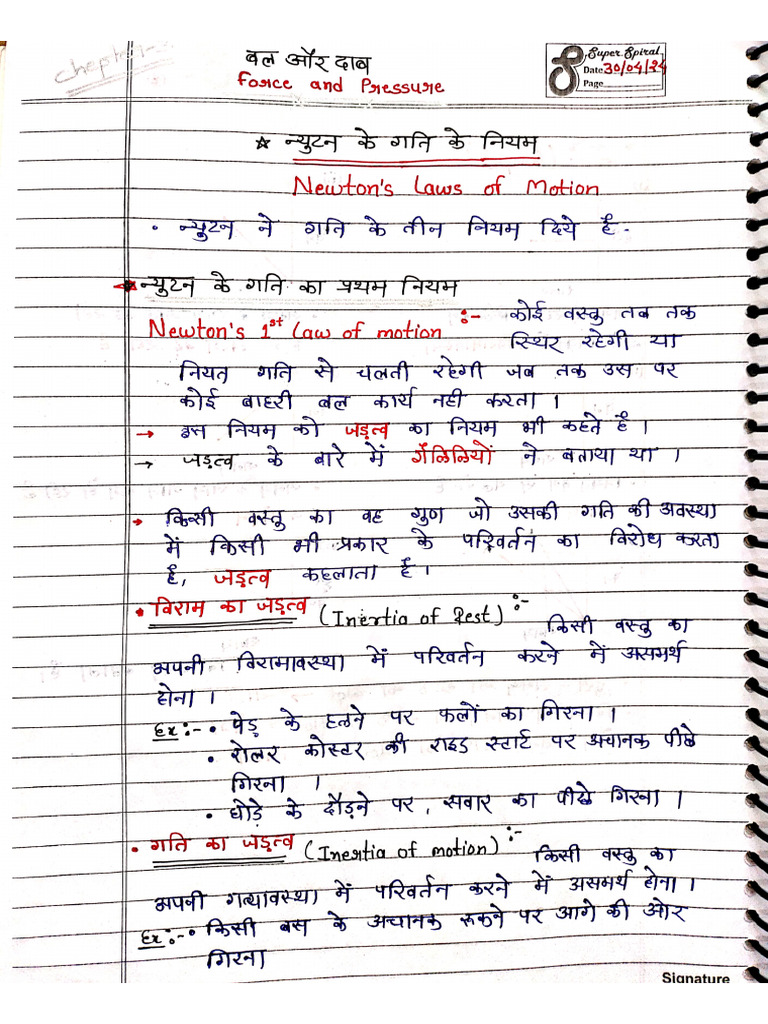 Chepter-
बल और दाब
Force and Pressure
Super Spiral
Date 30/04/24
Page
☆ न्युटन के गति के नियम
Newton's Laws of Motion
• न्युटन ने गति के तीन नियम दिये है -
न्युटन के गति का प्रथम नियम
Newton's 1st Law of motion :- कोई वस्तु तब तक
स्थिर रहेगी या
नियत गति से चलती रहेगी जब तक उस पर
कोई बाहरी बल कार्य नही करता ।
→ इस नियम को जड़त्व का नियम भी कहते है ।
→ जड़त्व के बारे में गैलिलियों ने बताया था ।
→ किसी वस्तु का वह गुण जो उसकी गति की अवस्था
में किसी भी प्रकार के परिवर्तन का विरोध करता
है, जड़त्व कहलाता है ।
• विराम का जड़त्व (Inertia of Rest) :-
किसी वस्तु का
अपनी विरामावस्था में परिवर्तन करने में असमर्थ
होना ।
Ex:- • पेड़ के हलने पर फलों का गिरना ।
• रोलर कोस्टर की राइड स्टार्ट पर अचानक पीछे
गिरना ।
• घोड़े के दौड़ने पर, सवार का पीछे गिरना ।
• गति का जड़त्व (Inertia of motion) :-
किसी वस्तु का
अपनी गत्यावस्था में परिवर्तन करने में असमर्थ होना ।
Ex:- • किसी बस के अचानक रूकने पर आगे की ओर
गिरना
Signature